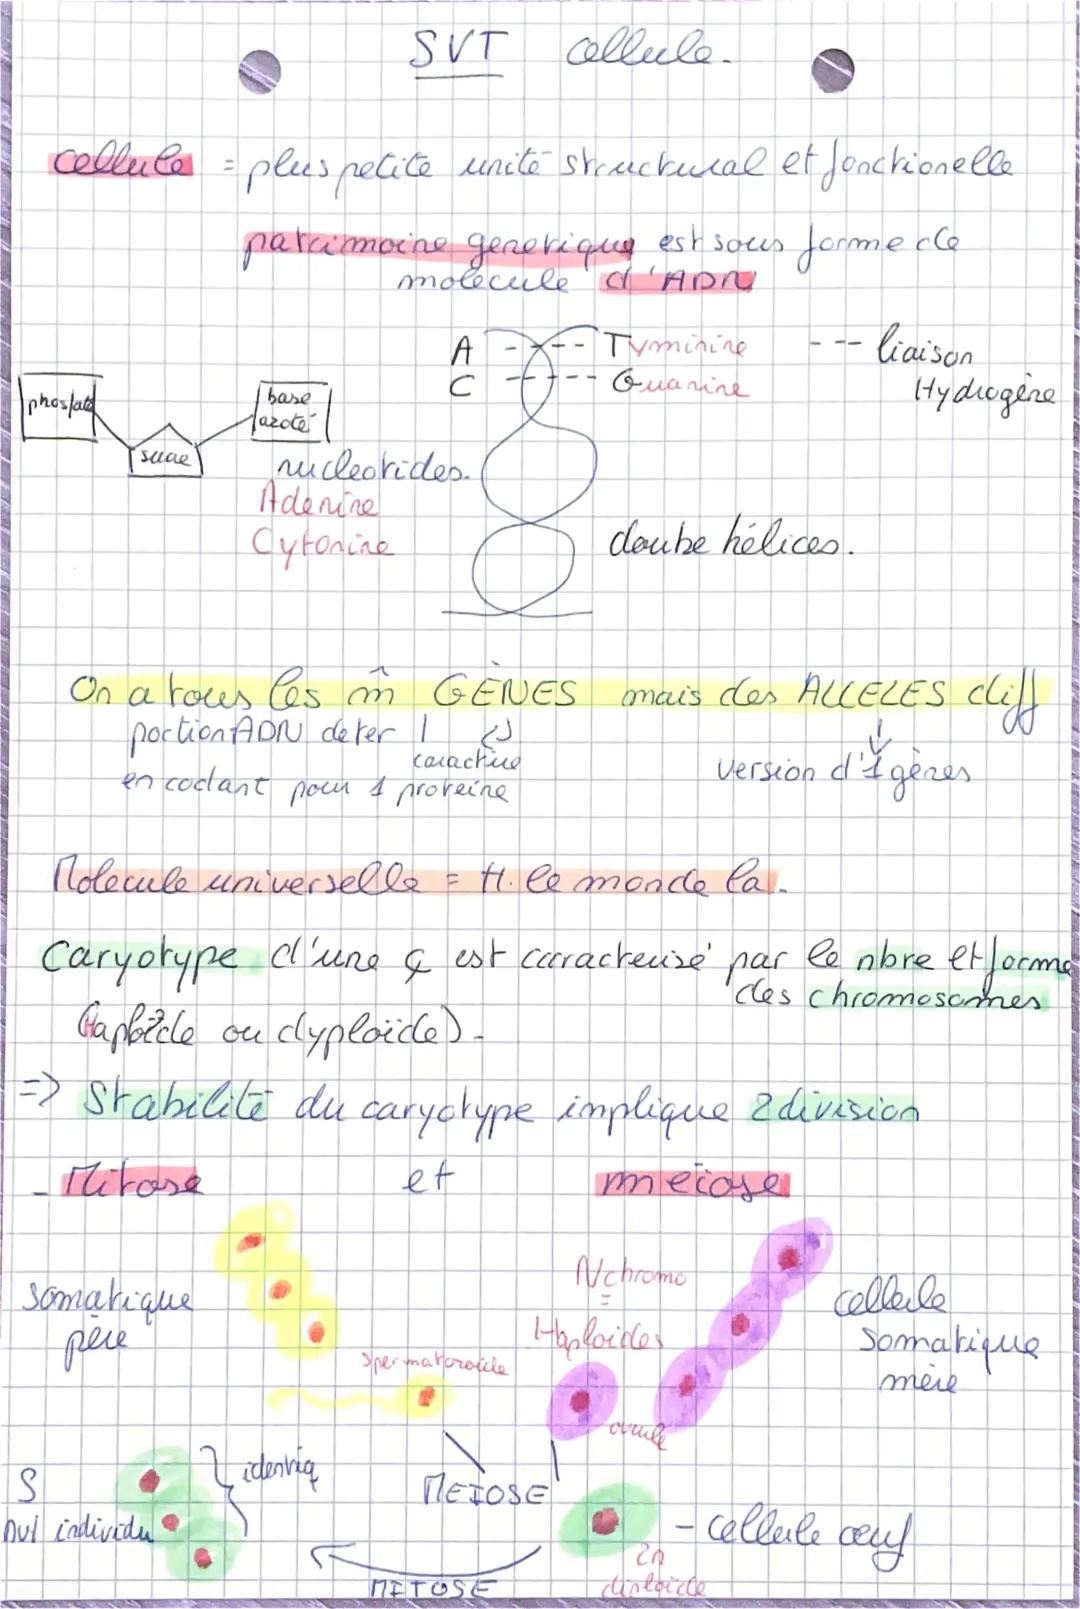 SVT cellule.
cellule = plus petite unité structural et fonctionelle
patrimoine genetique est sous forme de
molécule d'ADN
A --- Tyminine --- liaison
C --- Guanine Hydrogène
phosfate
base
azoté
sucre
nucleotides.
Adenine
Cytonine
doube hélices.
On a tous les m̂ GÈNES mais des ALLELES diff
portion ADN deter 1
caractère
version d'1 gènes
en codant pour 1 proteine
Molecule universelle = tt. le monde la.
Caryotype d'une ç est caracterisé par le nbre et forme
des chromosomes
(Haploïde ou dyploïde).
=> Stabilité du caryotype implique 2 division
- Mitose et meiose
N chromo
=
Haploides
somatique
père
cellule
somatique
mère
spermatozoide
ovule
identiq
S
nvl individu
MEIOSE
- cellule œuf
2n
diploide
MITOSE